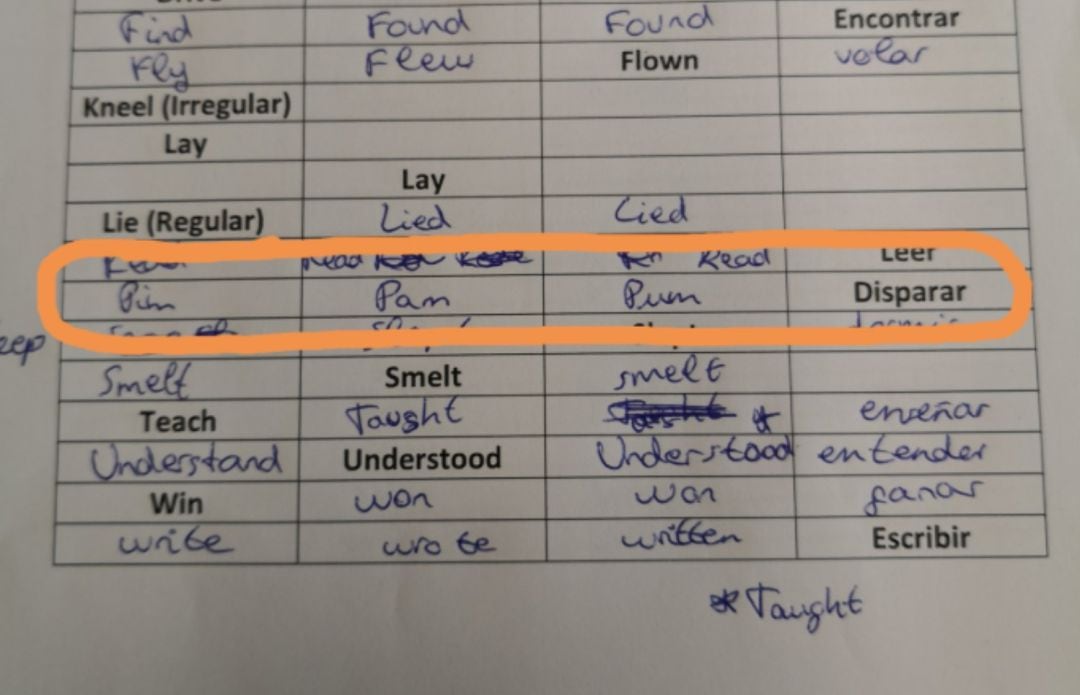 Find Found Found Encontrar
Fly Flew Flown volar
Kneel (Irregular)
Lay
Lay
Lie (Regular) Lied Lied
Read Read Leer
Pim Pam Pum Disparar
eep
Smelt Smelt smelt
Teach Taught Taught * enseñar
Understand Understood Understood entender
Win won won ganar
write wrote written Escribir
* Taught